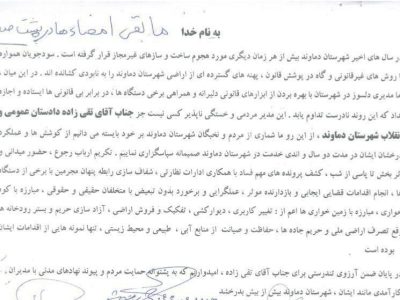 به نام خدا
مابقی امضاءها در پشت صفحه
در سال های اخیر شهرستان دماوند بیش از هر زمان دیگری مورد هجوم ساخت و سازهای غیرمجاز قرار گرفته است . سودجویان همواره
با روش های غیرقانونی و گاه در پوشش قانون ، پهنه های گسترده ای از اراضی شهرستان دماوند را به نابودی کشانده اند . در این میان
ما مدیری دلسوز در شهرستان با بهره بردن از ابزارهای قانونی دلیرانه و همراهی برخی دستگاه ها ، در برابر بی قانونی ها ایستاده و اجازه
نداد که این روند نادرست تداوم یابد . این مدیر مردمی و خستگی ناپذیر کسی نیست جز جناب آقای تقی زاده دادستان عمومی و
انقلاب شهرستان دماوند ، از این رو ما شماری از مردم و نخبگان شهرستان دماوند بر خود بایسته می دانیم از کوشش ها و عملکرد
درخشان ایشان در مدت دو سال و اندی خدمت در شهرستان دماوند صمیمانه سپاسگزاری نماییم . تکریم ارباب رجوع ، حضور میدانی و
اثر بخش تا پاسی از شب ، کشف پرونده های مهم فساد با همکاری ادارات نظارتی ، شفاف سازی رابطه پنهان مجرمین با برخی از دستگاه
ها ، انجام اقدامات قضایی ایجابی و بازدارنده موثر ، عملگرایی و برخورد بدون تبعیض با متخلفان حقیقی و حقوقی ، مبارزه با کوه
خواری ، مبارزه با زمین خواری ها اعم از : تغییر کاربری ، دیوارکشی ، تفکیک و فروش اراضی ، آزاد سازی حریم و بستر رودخانه ها
رفع تصرف اراضی ملی و حریم جاده ها ، حفاظت و صیانت از منابع آبی ، طبیعی و محیط زیستی ، تنها نمونه هایی از اقدامات ایشان
بوده است
در پایان ضمن آرزوی تندرستی برای جناب آقای تقی زاده ، امیدواریم که به پشتوانه حمایت مردم و پیوند نهادهای مدنی با مدیران
کارآمدی مانند ایشان ، شهرستان دماوند بیش از پیش بدرخشد